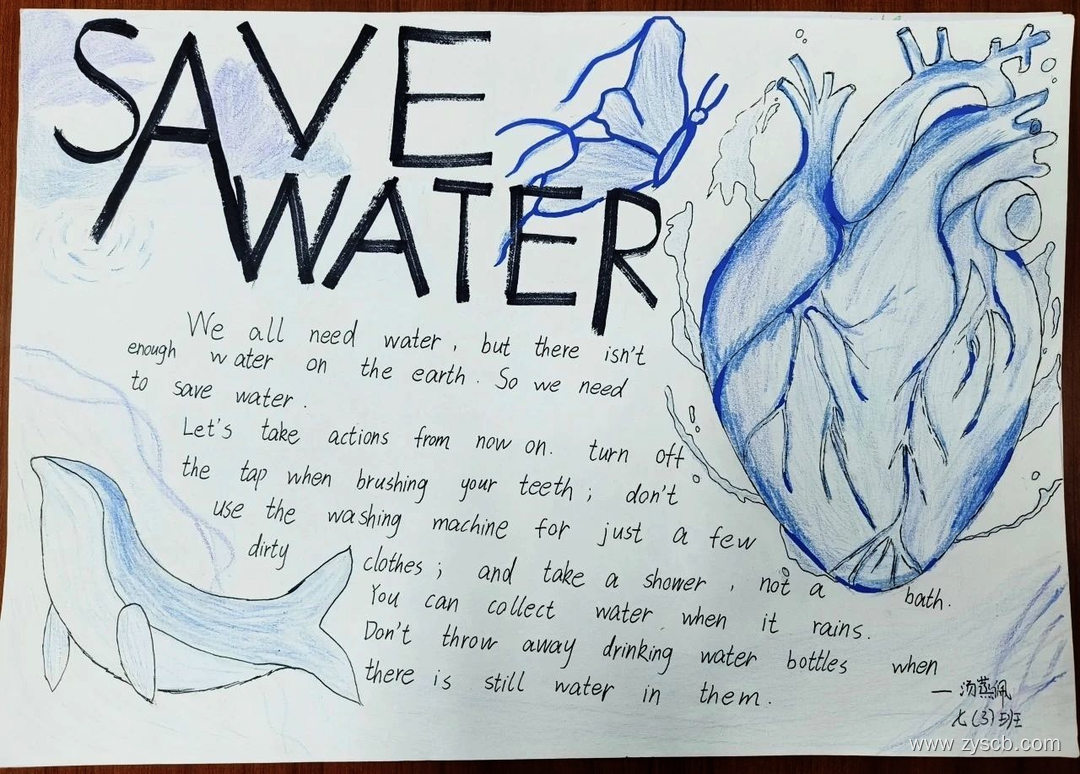 SAVE
WATER
We all need water, but there isn't
enough water on the earth. So we need
to save water.
Let's take actions from now on. turn off
the tap when brushing your teeth; don't
use the washing machine for just a few
dirty clothes; and take a shower, not a bath.
You can collect water when it rains.
Don't throw away drinking water bottles when
there is still water in them.
— 汤燕佩
七(3)班
www.zyscb.com